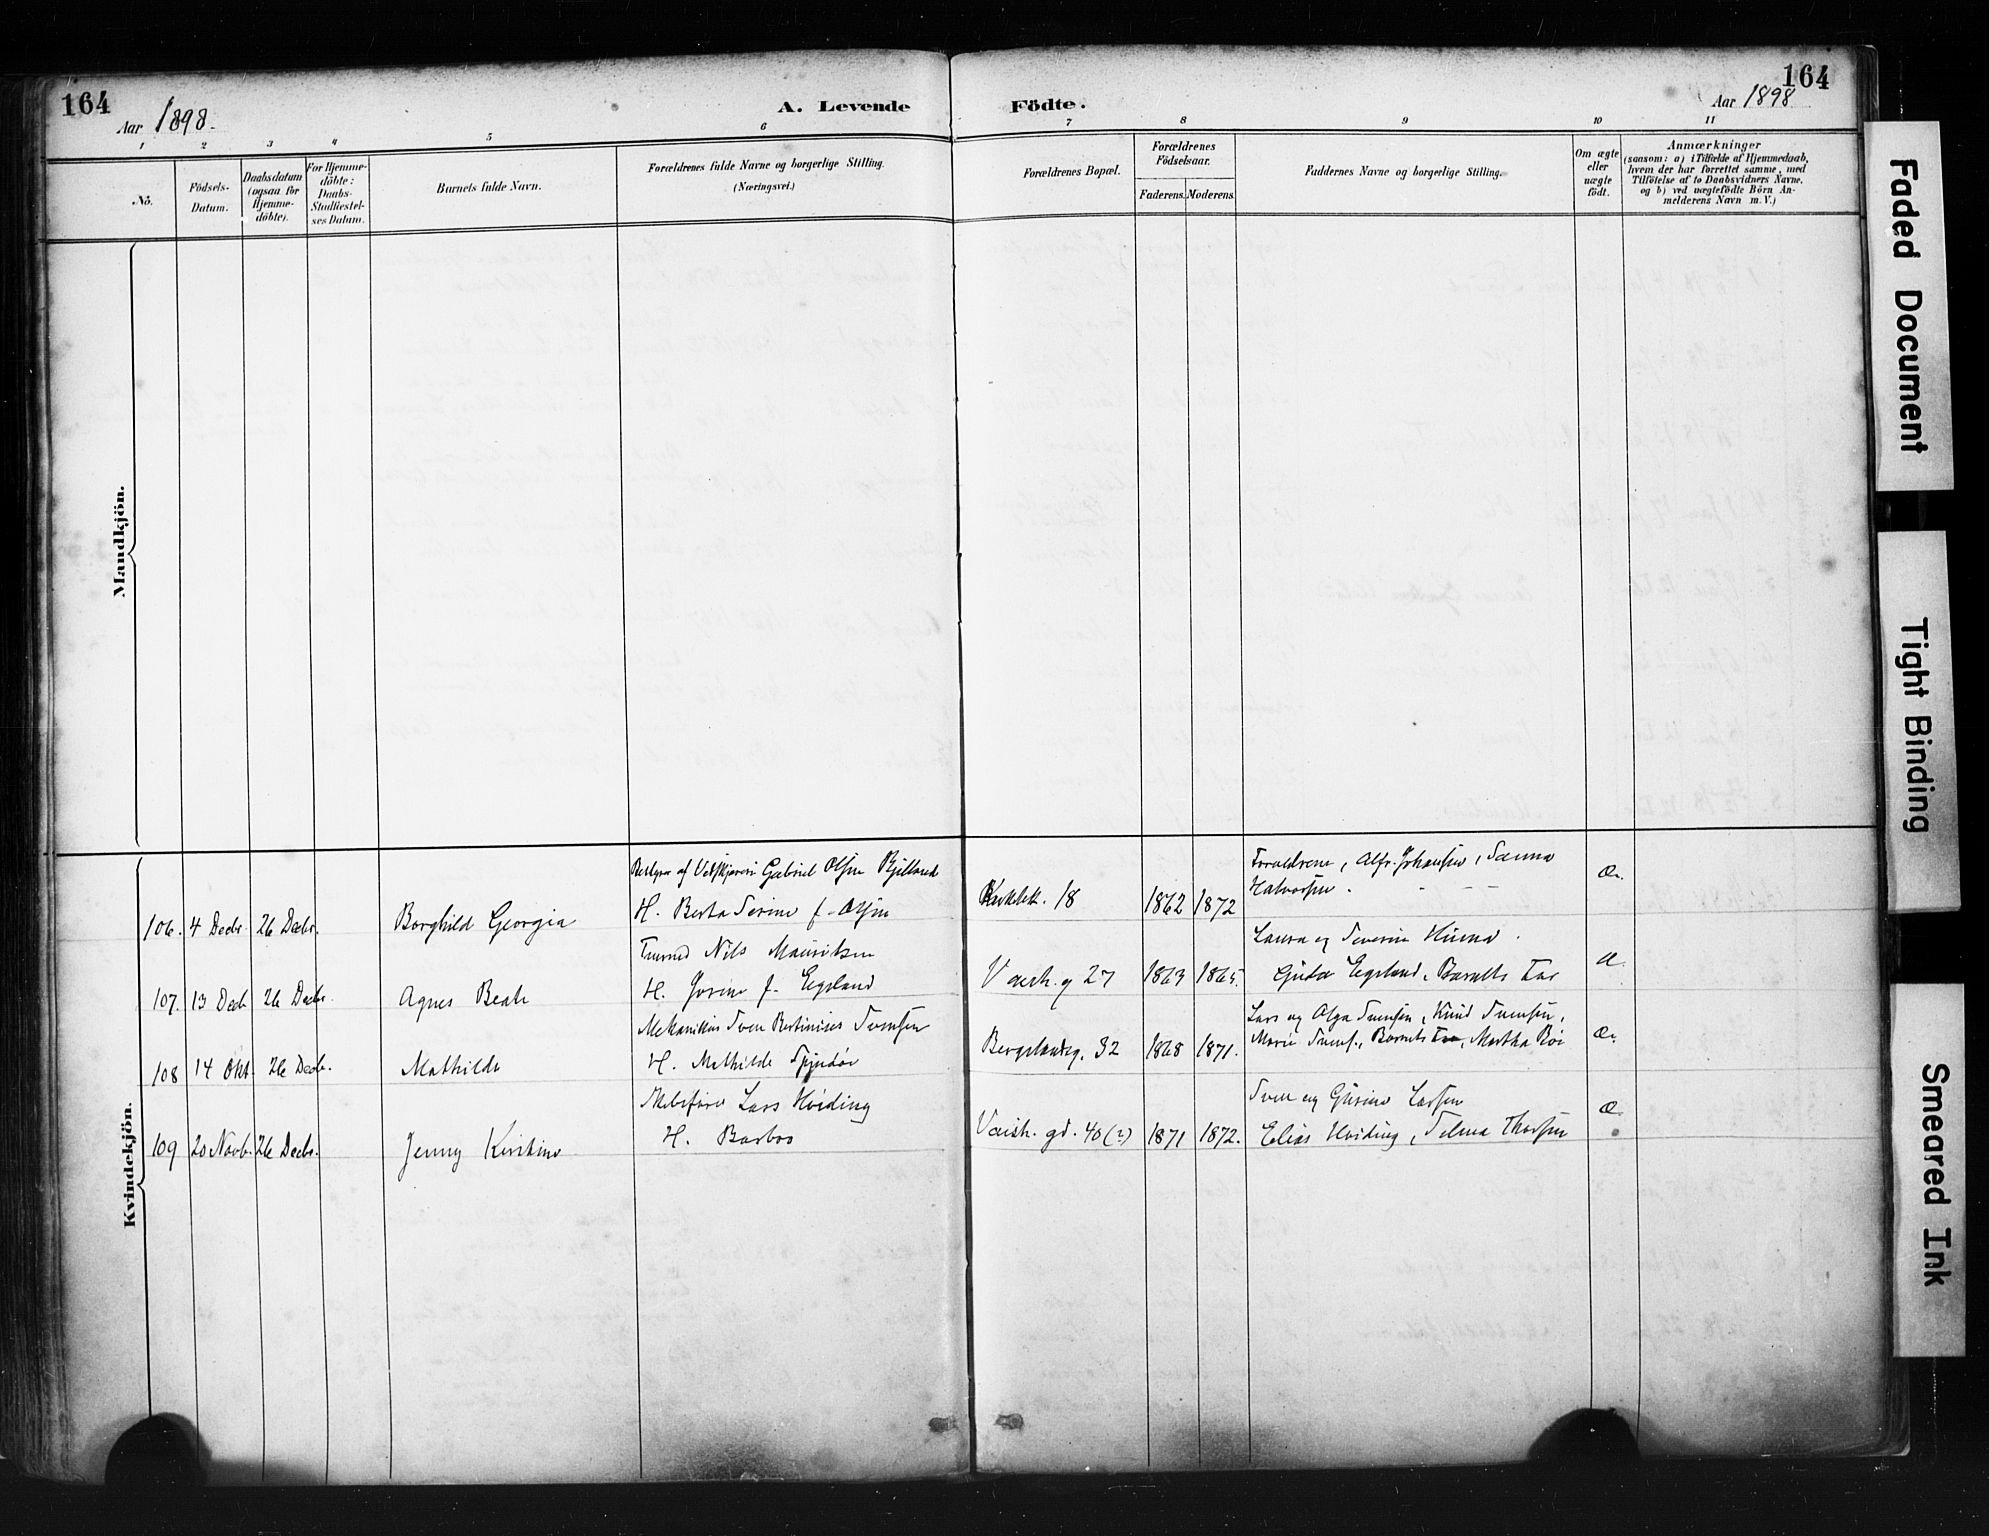 164
Aar 1898.
A. Levende Födte.
Aar 1898
164
1 2 3 4 5 6 7 8 9 10 11
No.
Födsels-Datum.
Daabsdatum (ogsaa for Hjemme-döbte).
For Hjemme-döbte: Daabs-Stadfæstel-ses Datum.
Barnets fulde Navn.
Forældrenes fulde Navne og borgerlige Stilling.
(Næringsvei.)
Forældrenes Bopæl.
Forældrenes Födselsaar.
Faderens. Moderens.
Faddernes Navne og borgerlige Stilling.
Om ægte eller uægte födt.
Anmærkninger
(saasom: a) i Tilfælde af Hjemmedaab,
hvem der har forrettet samme, med
Tilföielse af to Daabsvidners Navne,
og b) ved uægtefödte Börn An-
melderens Navn m. V.)
Mandkjön.
Kvindekjön.
Gabriel Olsen Bjelland
Forældrene, Alfr. Johansen, Sanna
Halvorsen.
106. 4 Decbr. 26 Decbr. Borghild Georgia H. Berta Serine f. Olsen 18 1862 1872 Æ.
Nils Mauritsen
Laura og Severin
107. 13 Decb. 26 Decbr. Agnes Beate H. Josine f. Egeland Vaish. g 27 1863 1865. Egeland, Barnets Far Æ
Mekanikus Sven Bertinius Svensen
Lars og Olga Svensen, Knud Svensen,
108 14 Okt. 26 Decbr. Mathilde H. Mathilde Bergelandsg. 32 1868 1871. Marie Svens., Barnets Far, Martha Æ.
Lars Hviding
Sven og Gurine Larsen
109 20 Novb. 26 Decbr. Jenny Kristine H. Barbro Vaish. gd. 40 (?) 1871 1872. Elias Hviding, Selma Thorsen Æ.
Faded Document
Tight Binding
Smeared Ink